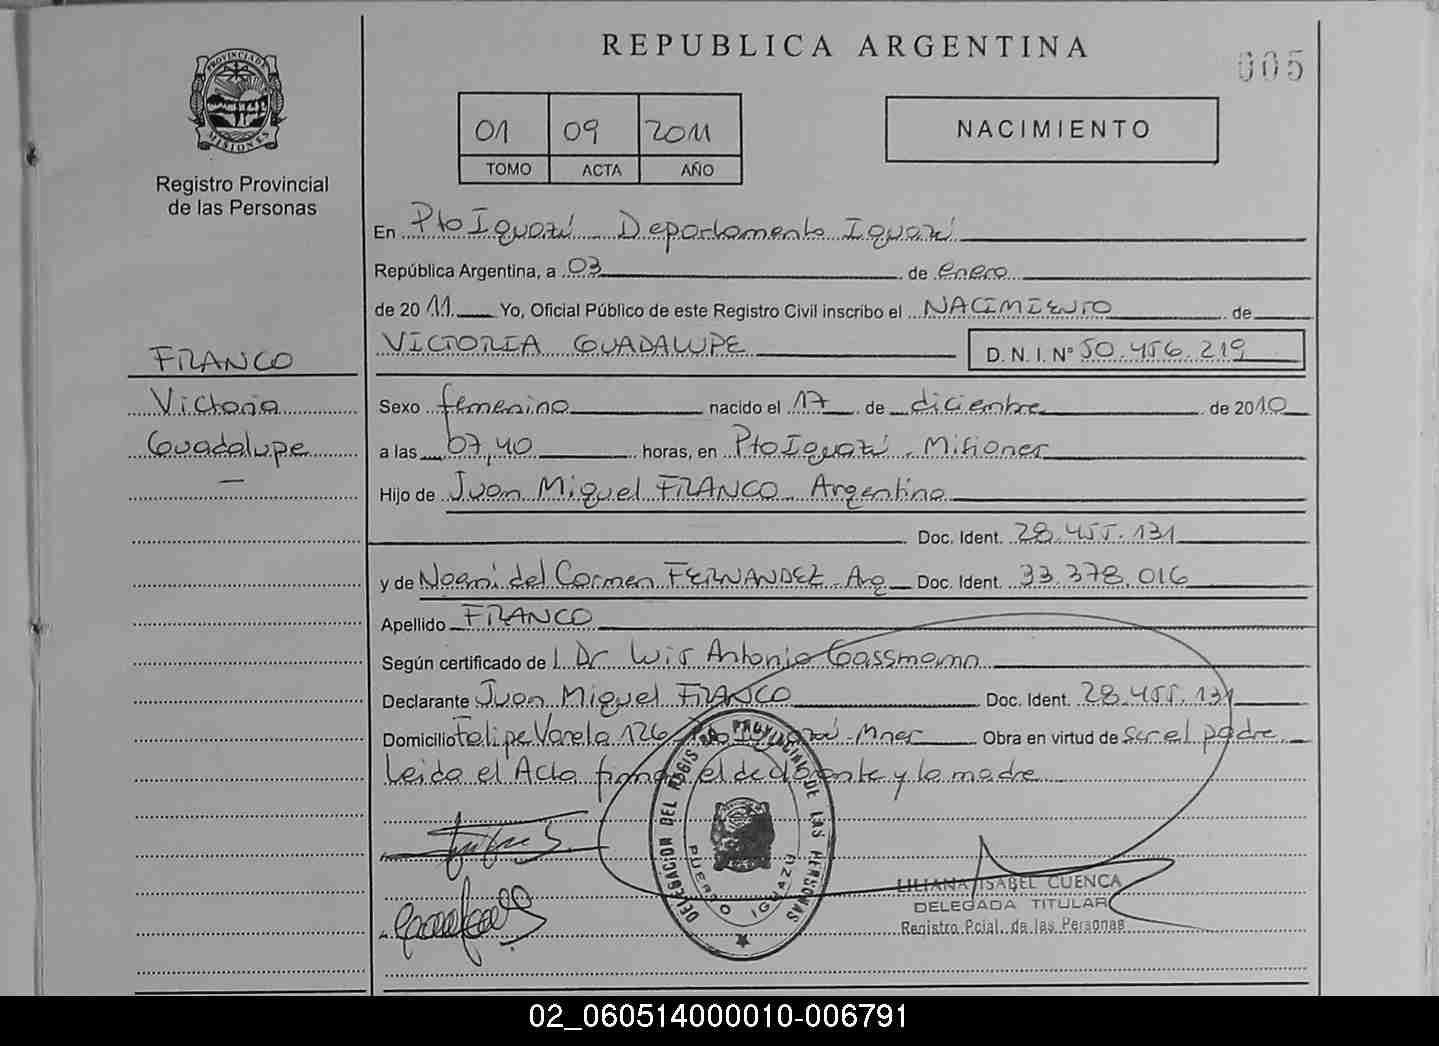 REPUBLICA ARGENTINA
005
PROVINCIA DE
MISIONES
Registro Provincial
de las Personas
01 09 2011
TOMO ACTA AÑO
NACIMIENTO
En Pto Iguazú Departamento Iguazú
República Argentina, a 03 de enero
de 2011 Yo, Oficial Público de este Registro Civil inscribo el NACIMIENTO de
VICTORIA GUADALUPE D.N.I. Nº 50.456.219
FRANCO
Victoria
Guadalupe
—
Sexo femenino nacido el 17 de diciembre de 2010
a las 07,40 horas, en Pto Iguazú, Misiones
Hijo de Juan Miguel FRANCO, Argentino
Doc. Ident. 28.455.131
y de Noemi del Carmen FERNANDEZ Arg Doc. Ident. 33.378.016
Apellido FRANCO
Según certificado de Dr Luis Antonio Gassmann
Declarante Juan Miguel FRANCO Doc. Ident. 28.455.131
Domicilio Felipe Varela 126 Pto Iguazú - Mnes Obra en virtud de ser el padre
Leida el Acta firman el declarante y la madre
DELEGACION DEL REGISTRO PROVINCIAL DE LAS PERSONAS
PUERTO IGUAZÚ
LILIANA ISABEL CUENCA
DELEGADA TITULAR
Registro Pcial. de las Personas
02_060514000010-006791